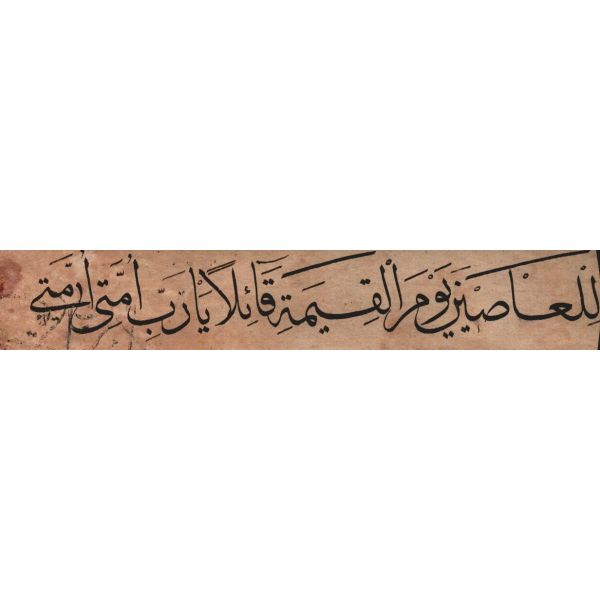 لِلْعَاصِينَ يَوْمَ الْقِيمَةِ قَائِلًا يَا رَبِّ اُمَّتِى اُمَّتِى